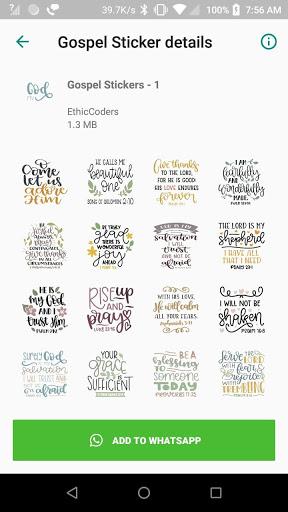 39.7K/s
100%
7:56 AM
Gospel Sticker details
God
Gospel Stickers - 1
EthicCoders
1.3 MB
Come
let us
adore
Him
HE CALLS ME
beautiful
one
SONG OF SOLOMON 2:10
Give thanks
TO THE LORD,
FOR HE IS GOOD!
HIS LOVE ENDURES
forever
I AM
fearfully
AND
wonderfully
MADE.
BE
joyful
ALWAYS
PRAY
CONTINUALLY
GIVE
thanks
IN ALL
CIRCUMSTANCES
BE TRULY
glad
THERE IS
WONDERFUL
joy
AHEAD
salvation
I WILL
TRUST
AND NOT BE
afraid
THE LORD IS MY
shepherd
I HAVE ALL
THAT I NEED
PSALM 23:1
HE IS
my God
AND I
trust Him
RISE
up
AND
pray
WITH HIS LOVE,
He will calm
ALL YOUR FEARS.
I WILL NOT BE
shaken
Surely God
salvation
I WILL TRUST
AND
not be
afraid
YOUR
grace
IS
SUFFICIENT
BE A
blessing
to
someone
TODAY
PROVERBS 11:25
Serve the
LORD
with
fear &
rejoice
WITH
TREMBLING
ADD TO WHATSAPP